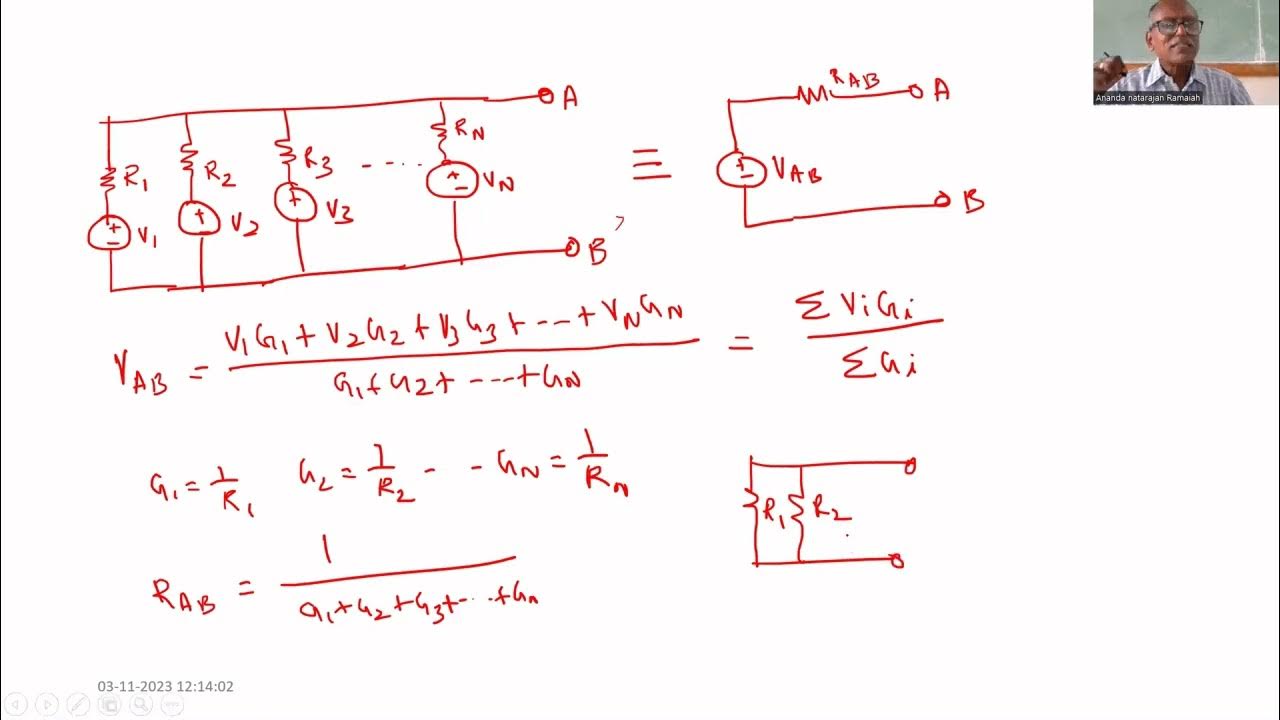 Ananda natarajan Ramaiah
R1 V1 R2 V2 R3 V3 - - ... RN VN A B
≡
RAB VAB A B
VAB = (V1G1 + V2G2 + V3G3 + --.. + VNGN) / (G1 + G2 + --..+ GN) = ΣViGi / ΣGi
G1 = 1/R1 G2 = 1/R2 - - GN = 1/RN
R1 R2
RAB = 1 / (G1+G2+G3+-..+Gn)
03-11-2023 12:14:02